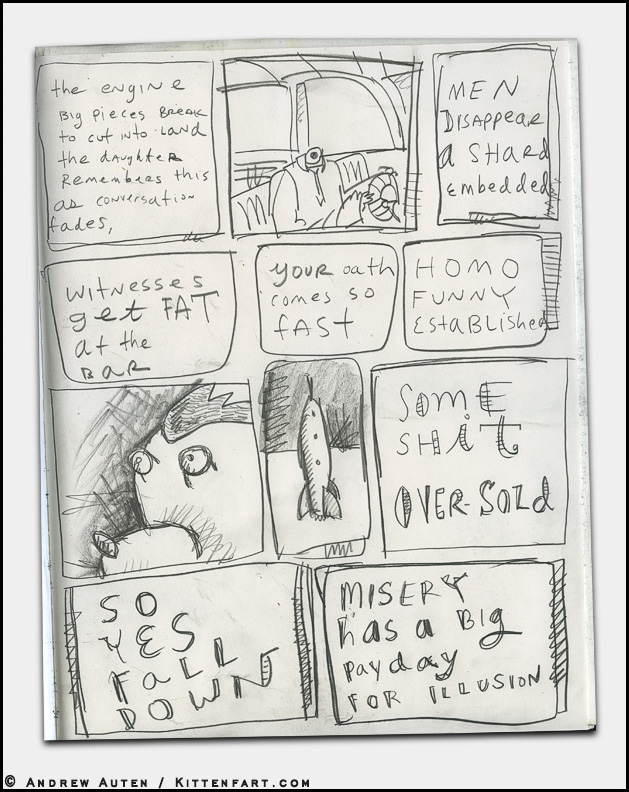 the ENGINE
BIG PIECES BREAK
to cut into land
the DAUGHTER
REMEMBERS this
as conversation
fades,
MEN
DISAPPEAR
A SHARD
Embedded
WITNESSES
get FAT
at the
BAR
YOUR oath
comes so
fAST
HOMO
FUNNY
EstAblishEd
SOME
SHiT
OVER-SOLd
SO
YES
FaLL
DOWN
MISERY
has a BIG
payday
FOR ILLUSION
© ANDREW AUTEN / KITTENFART.COM